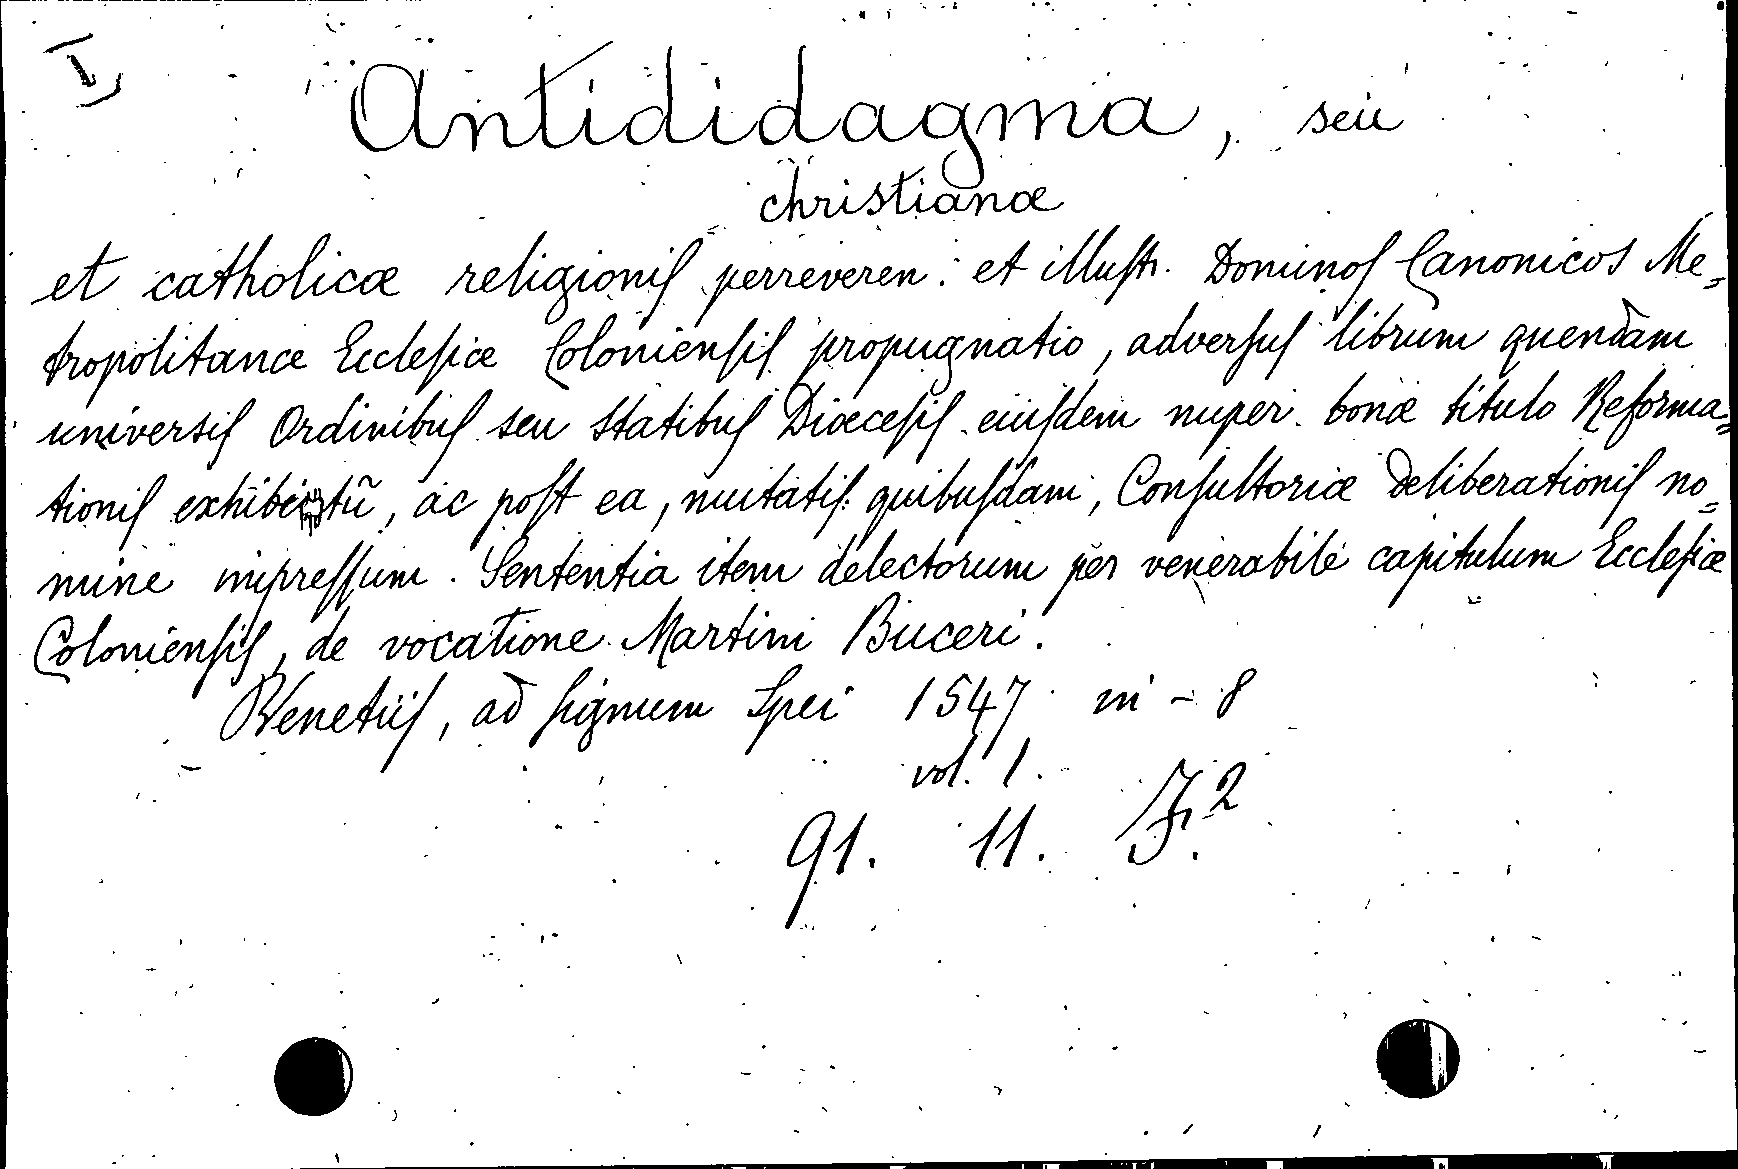 I
Antididagma, seu
christianæ
et catholicæ religionis perreveren: et illustr. Dominos Canonicos Me=
tropolitanæ Ecclesiæ Coloniensis propugnatio, adversus librum quendam
universis Ordinibus seu Statibus Diœcesis eiusdem nuper bonæ titulo Reforma=
tionis exhibitũ, ac post ea, mutatis quibusdam, Consultoriæ deliberationis no=
mine impressum. Sententia item delectorum per venerabile capitulum Ecclesiæ
Coloniensis, de vocatione Martini Buceri.
Venetiis, ad signum Spei 1547 in - 8
vol. 1.
91. 11.